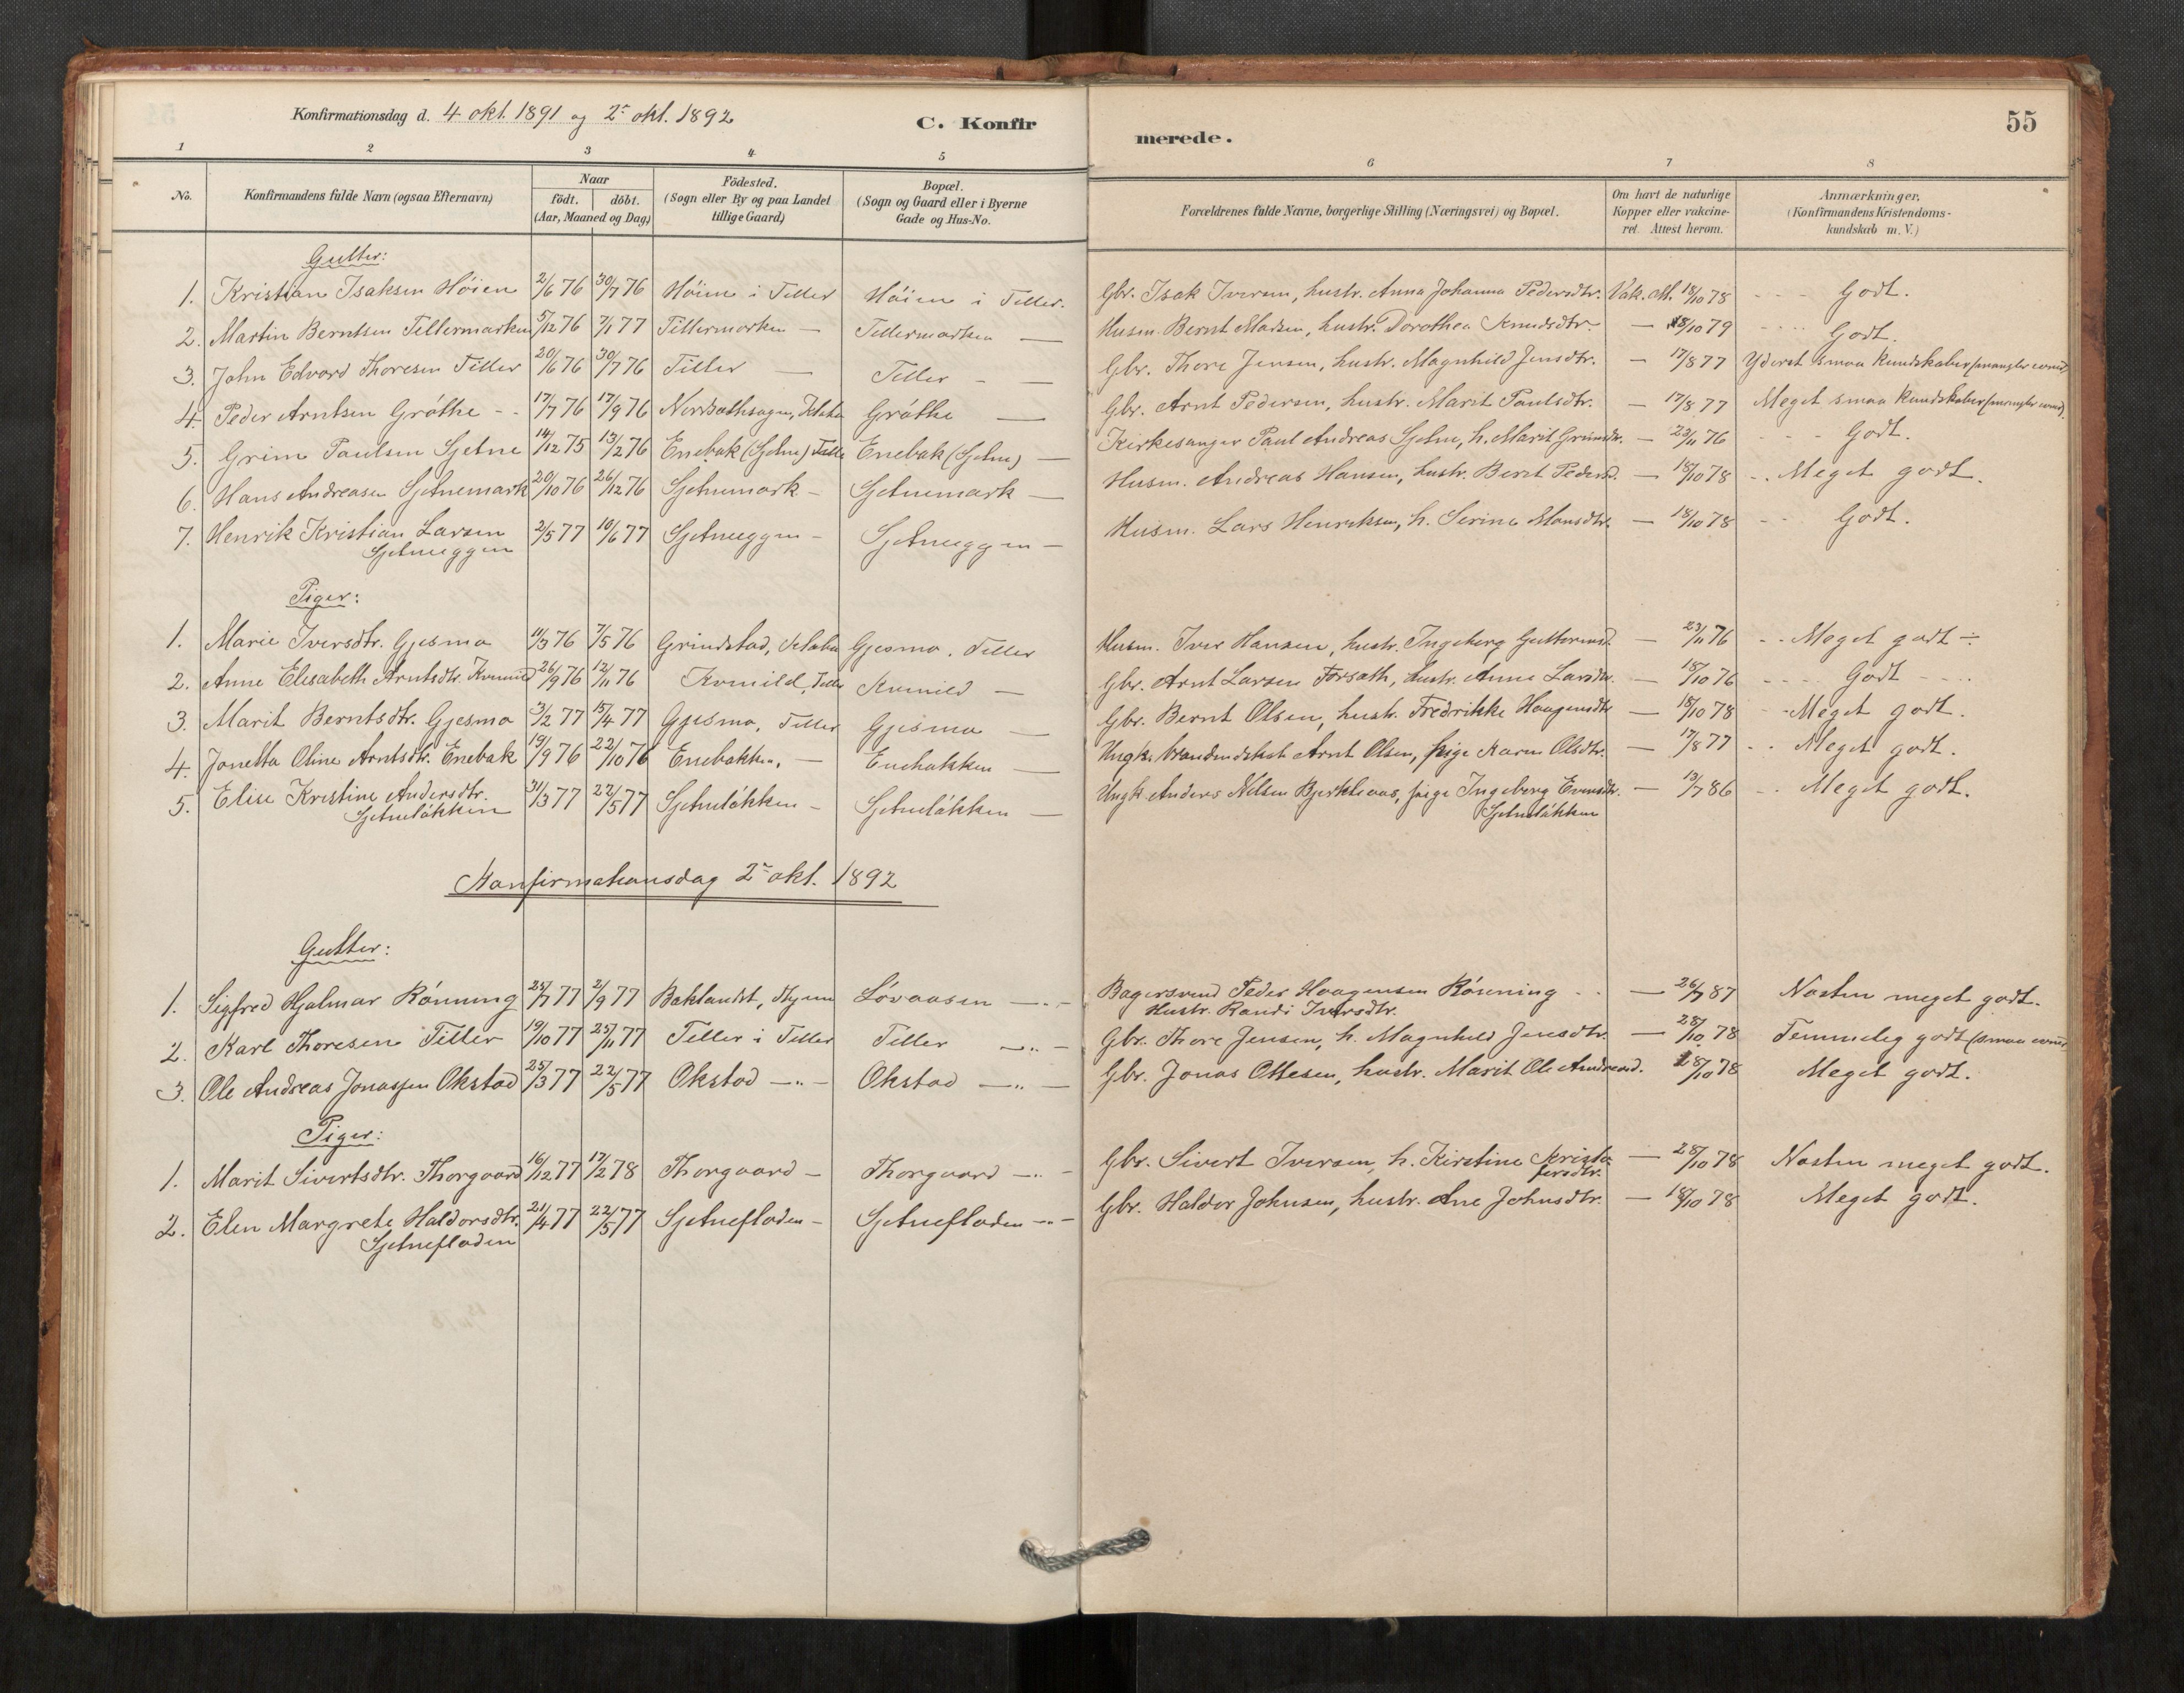 Konfirmationsdag d. 4 okt. 1891 og 2den okt. 1892
C. Konfirmerede.
55
1 2 3 4 5 6 7 8
No. Konfirmandens fulde Navn (ogsaa Efternavn) Naar födt. döbt. (Aar, Maaned og Dag) Födested. (Sogn eller By og paa Landet tillige Gaard) Bopæl. (Sogn og Gaard eller i Byerne Gade og Hus-No. Forældrenes fulde Navne, borgerlige Stilling (Næringsvei) og Bopæl. Om havt de naturlige Kopper eller vakcineret. Attest herom. Anmærkninger, (Konfirmandens Kristendomskundskab m. V.)
Gutter:
1. Kristian Isaksen Höien 2/6 76 30/7 76 Höien i Tiller Höien i Tiller. Gbr. Isak Iversen, hustr. Anna Johanna Pedersdtr. Vak. Att. 18/10 78 Godt.
2. Martin Berntsen Tillermarken 5/12 76 7/1 77 Tillermarken — Tillermarken — Husm. Bernt Madsen, hustr. Dorothea Knudsdtr. — 18/10 79 Godt.
3. John Edvard Thoresen Tiller 20/6 76 30/7 76 Tiller — Tiller — Gbr. Thore Jensen, hustr. Magnhild Jensdtr. — 17/8 77 Yderst smaa kundskaber (mangler evner)
4. Peder Arntsen Gröthe 17/7 76 17/9 76 Gröthe — Gbr. Arnt Pedersen, hustr. Marit Paulsdtr. — 17/8 77 Meget smaa kundskaber (mangler evner).
5. Grim Paulsen Sjetne 14/12 75 13/2 76 Enebak (Sjetne) Tiller Enebak (Sjetne) — Kirkesanger Paul Andreas Sjetne, h. Marit Grimsdtr. — 23/11 76 Godt.
6. Hans Andreasen Sjetnemark 20/10 76 26/12 76 Sjetnemark — Sjetnemark — Husm. Andreas Hansen, hustr. Berit Pedersd. — 18/10 78 Meget godt.
7. Henrik Kristian Larsen 2/5 77 10/6 77 Sjetneggen — Sjetneggen — Husm. Lars Henriksen, h. Serine Monsdtr. — 18/10 78 Godt.
Sjetneggen
Piger:
1. Marie Iversdtr. Gjesmo 11/3 76 7/5 76 Grindstad, Gjesmo. Tiller Husm. Iver Hansen, hustr. Ingeborg Guttormsd. — 23/11 76 Meget godt ÷
2. Anne Elisabeth Arntsdtr. Kvenild 26/9 76 12/11 76 Kvenild, Tiller Kvenild — Gbr. Arnt Larsen Forsæth, hustr. Anne Larsdtr. — 18/10 76 Godt
3. Marit Berntsdtr. Gjesmo 3/2 77 15/4 77 Gjesmo, Tiller Gjesmo — Gbr. Bernt Olsen, hustr. Fredrikke Haagensdtr — 18/10 78 Meget godt.
4. Jonetta Oline Arntsdtr. Enebak 19/9 76 22/10 76 Enebakken, — Enebakken — Ungk. Arnt Olsen, pige Karen Olsdtr. — 17/8 77 Meget godt.
5. Elise Kristine Andersdtr. 31/3 77 22/5 77 Sjetneløkken — Sjetneløkken — Ungk. Anders Nilsen pige Ingeborg Evensdtr. — 13/7 86 Meget godt.
Sjetneløkken Sjetneløkken
Konfirmationsdag 2den okt. 1892
Gutter:
1. Sigfred Hjalmar Rönning 25/7 77 2/9 77 Baklandet, Løvaasen — Bagersvend Peder Haagensen Rönning — 26/7 87 Næsten meget godt.
Hustr. Randi Iversdtr.
2. Karl Thoresen Tiller 19/10 77 25/11 77 Tiller i Tiller Tiller — Gbr. Thore Jensen, h. Magnhild Jensdtr. — 28/10 78 Temmelig godt (smaa evner
3. Ole Andreas Jonassen Okstad 25/3 77 22/5 77 Okstad — Okstad — Gbr. Jonas Ottesen, hustr. Marit Ole Andreasd. 28/10 78 Meget godt.
Piger:
1. Marit Sivertsdtr. Thorgaard 16/12 77 17/2 78 Thorgaard — Thorgaard — Gbr. Sivert Iversen, h. Kirstine Kristofersdtr. — 28/10 78 Næsten meget godt.
2. Elen Margrete Haldorsdtr. 21/4 77 22/5 77 Sjetnefladen — Sjetnefladen — Gbr. Haldor Johnsen, hustr. Ane Johnsdtr. — 18/10 78 Meget godt.
Sjetnefladen